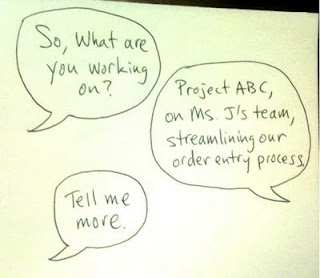 So, What are
you working
on?
Project ABC,
on Ms. J's team,
streamlining our
order entry process.
Tell me
more.